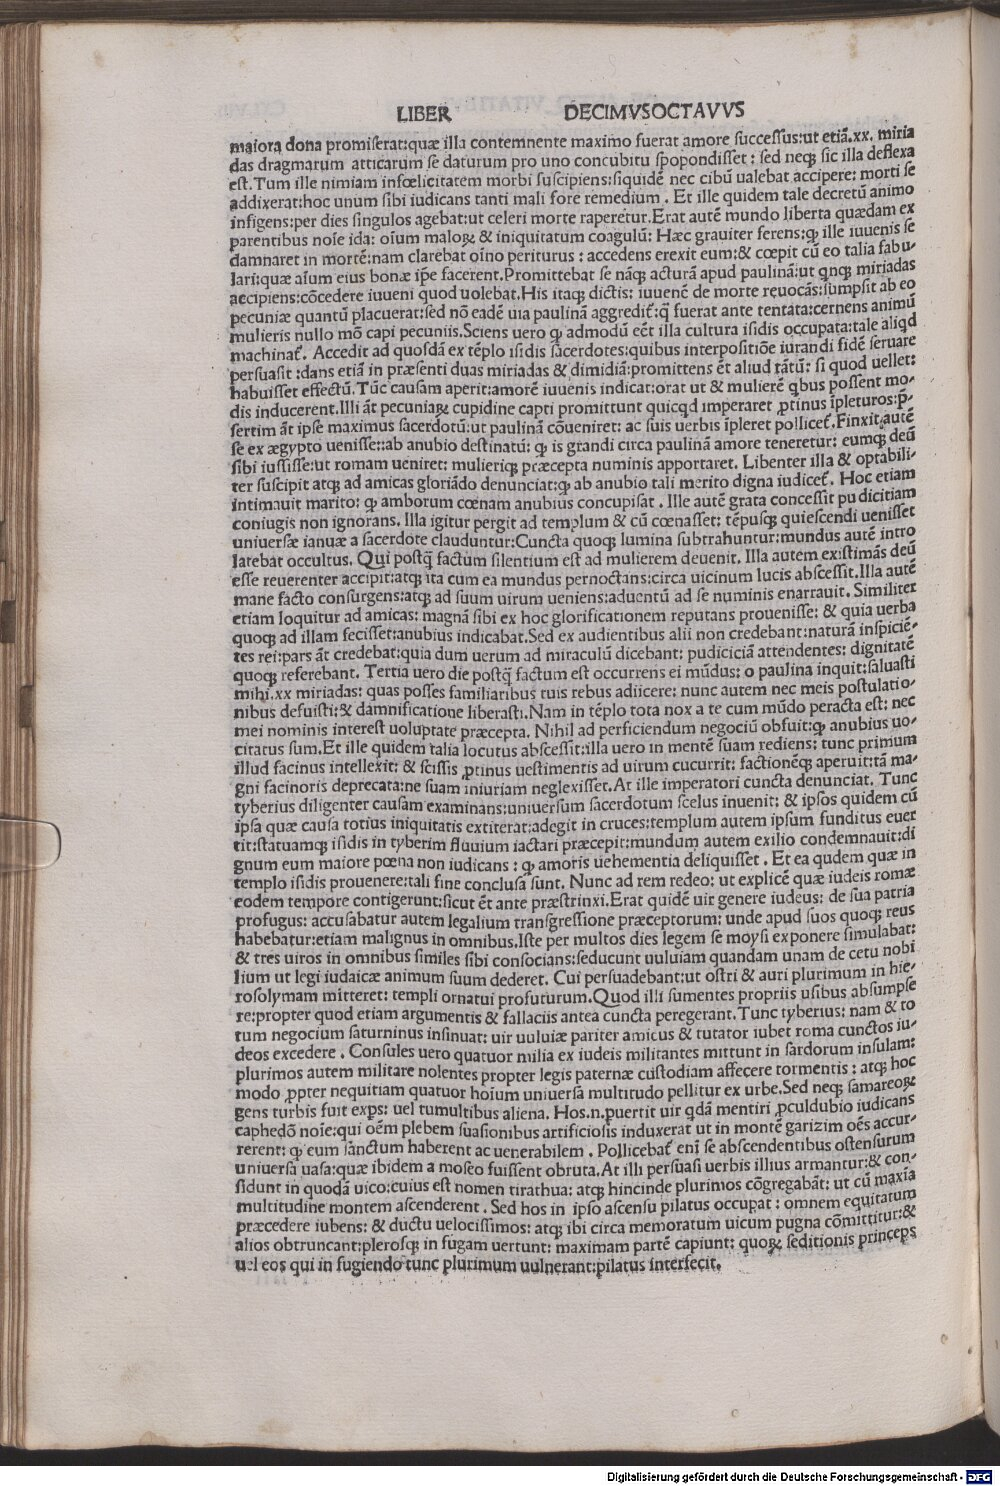 LIBER DECIMVSOCTAVVS
maiora dona promiserat:quæ illa contemnente maximo fuerat amore successus:ut etiā.xx. miria
das dragmarum atticarum se daturum pro uno concubitu spopondisset : sed neqꝫ sic illa deflexa
est.Tum ille nimiam infœlicitatem morbi suscipiens:siquidē nec cibū ualebat accipere: morti se
addixerat:hoc unum sibi iudicans tanti mali fore remedium . Et ille quidem tale decretū animo
infigens:per dies singulos agebat:ut celeri morte raperetur.Erat autē mundo liberta quædam ex
parentibus noīe ida: oīum maloꝝ & iniquitatum coagulū: Hæc grauiter ferens:ꝙ ille iuuenis se
damnaret in mortē:nam clarebat oīno periturus : accedens erexit eum:& cœpit cū eo talia fabu-
lari:quæ aīum eius bonæ īpe facerent.Promittebat se nāqꝫ acturā apud paulinā:ut qnqꝫ miriadas
accipiens:cōcedere iuueni quod uolebat.His itaqꝫ dictis: iuuenē de morte reuocās:sumpsit ab eo
pecuniæ quantū placuerat:sed nō eadē uia paulinā aggredit̃:q̄ fuerat ante tentata:cernens animū
mulieris nullo mō capi pecuniis.Sciens uero ꝙ admodū eēt illa cultura isidis occupata:tale aliqd
machinat̃. Accedit ad quosdā ex tēplo isidis sacerdotes:quibus interpositiōe iurandi fidē seruare
persuasit :dans etiā in præsenti duas miriadas & dimidiā:promittens ēt aliud tātū: si quod uellet:
habuisset effectū.Tūc causam aperit:amorē iuuenis indicat:orat ut & mulierē qbus possent mo-
dis inducerent.Illi āt pecuniaꝝ cupidine capti promittunt quicqd imperaret ꝓtinus īpleturos:p̄-
sertim āt ipse maximus sacerdotū:ut paulinā cōueniret: ac suis uerbis īpleret pollicet̃.Finxit autē
se ex ægypto uenisse::ab anubio destinatū: ꝙ is grandi circa paulinā amore teneretur: eumqꝫ deū
sibi iussisse:ut romam ueniret: mulieriqꝫ præcepta numinis apportaret. Libenter illa & optabili-
ter suscipit atqꝫ ad amicas gloriādo denunciat:ꝙ ab anubio tali merito digna iudicet̃. Hoc etiam
intimauit marito: ꝙ amborum cœnam anubius concupisat . Ille autē grata concessit pudicitiam
coniugis non ignorans. Illa igitur pergit ad templum & cū cœnasset: tēpusqꝫ quiescendi uenisset
uniuersæ ianuæ a sacerdote clauduntur:Cuncta quoqꝫ lumina subtrahuntur:mundus autē intro
latebat occultus. Qui postq̄ factum silentium est ad mulierem deuenit. Illa autem existimās deū
esse reuerenter accipit:atqꝫ ita cum ea mundus pernoctans:circa uicinum lucis abscessit.Illa autē
mane facto consurgens:atqꝫ ad suum uirum ueniens:aduentū ad se numinis enarrauit. Similiter
etiam loquitur ad amicas: magnā sibi ex hoc glorificationem reputans prouenisse: & quia uerba
quoqꝫ ad illam fecisset:anubius indicabat.Sed ex audientibus alii non credebant:naturā inspiciē-
tes rei:pars āt credebat:quia dum uerum ad miraculū dicebant: pudiciciā attendentes: dignitatē
quoqꝫ referebant. Tertia uero die postq̄ factum est occurrens ei mūdus: o paulina inquit:saluasti
mihi.xx miriadas: quas posses familiaribus tuis rebus adiicere: nunc autem nec meis postulatio-
nibus defuisti:& damnificatione liberasti.Nam in tēplo tota nox a te cum mūdo peracta est: nec
mei nominis interest uoluptate præcepta. Nihil ad perficiendum negociū obfuit:ꝙ anubius uo-
citatus sum.Et ille quidem talia locutus abscessit:illa uero in mentē suam rediens: tunc primum
illud facinus intellexit: & scissis ꝓtinus uestimentis ad uirum cucurrit: factionēqꝫ aperuit:tā ma-
gni facinoris deprecata:ne suam iniuriam neglexisset.At ille imperatori cuncta denunciat. Tunc
tyberius diligenter causam examinans:uniuersum sacerdotum scelus inuenit: & ipsos quidem cū
ipsa quæ causa totius iniquitatis extiterat:adegit in cruces:templum autem ipsum funditus euer
tit:statuamqꝫ isidis in tyberim fluuium iactari præcepit:mundum autem exilio condemnauit:di
gnum eum maiore pœna non iudicans : ꝙ amoris uehementia deliquisset . Et ea qudem quæ in
templo isidis prouenere:tali fine conclusa sunt. Nunc ad rem redeo: ut explicē quæ iudeis romæ
eodem tempore contigerunt:sicut ēt ante præstrinxi.Erat quidē uir genere iudeus: de sua patria
profugus: accusabatur autem legalium transgressione præceptorum: unde apud suos quoqꝫ reus
habebatur:etiam malignus in omnibus.Iste per multos dies legem se moysi exponere simulabat:
& tres uiros in omnibus similes sibi consocians:seducunt uuluiam quandam unam de cetu nobi
lium ut legi iudaicæ animum suum dederet. Cui persuadebant:ut ostri & auri plurimum in hie-
rosolymam mitteret: templi ornatui profuturum.Quod illi sumentes propriis usibus absumpse
re:propter quod etiam argumentis & fallaciis antea cuncta peregerant.Tunc tyberius: nam & to
tum negocium saturninus insinuat: uir uuluiæ pariter amicus & tutator iubet roma cunctos iu-
deos excedere . Consules uero quatuor milia ex iudeis militantes mittunt in sardorum insulam:
plurimos autem militare nolentes propter legis paternæ custodiam affecere tormentis : atqꝫ hoc
modo ꝓpter nequitiam quatuor hoīum uniuersa multitudo pellitur ex urbe.Sed neqꝫ samareoꝝ
gens turbis fuit exps: uel tumultibus aliena. Hos.n.puertit uir qdā mentiri ꝓculdubio iudicans
caphedō noīe:qui oēm plebem suasionibus artificiosis induxerat ut in montē garizim oēs accur-
rerent: ꝙ eum sānctum haberent ac uenerabilem . Pollicebat̃ enī se abscendentibus ostensurum
uniuersa uasa:quæ ibidem a moseo fuissent obruta.At illi persuasi uerbis illius armantur:& con-
sidunt in quodā uico:cuius est nomen tirathua: atqꝫ hincinde plurimos cōgregabāt: ut cū maxīa
multitudine montem ascenderent . Sed hos in ipso ascensu pilatus occupat : omnem equitatum
præcedere iubens: & ductu uelocissimos: atqꝫ ibi circa memoratum uicum pugna cōmittitur:&
alios obtruncant:plerosqꝫ in fugam uertunt: maximam partē capiunt: quoꝝ seditionis princeps
uel eos qui in fugiendo tunc plurimum uulnerant:pilatus interfecit.
Digitalisierung gefördert durch die Deutsche Forschungsgemeinschaft - DFG